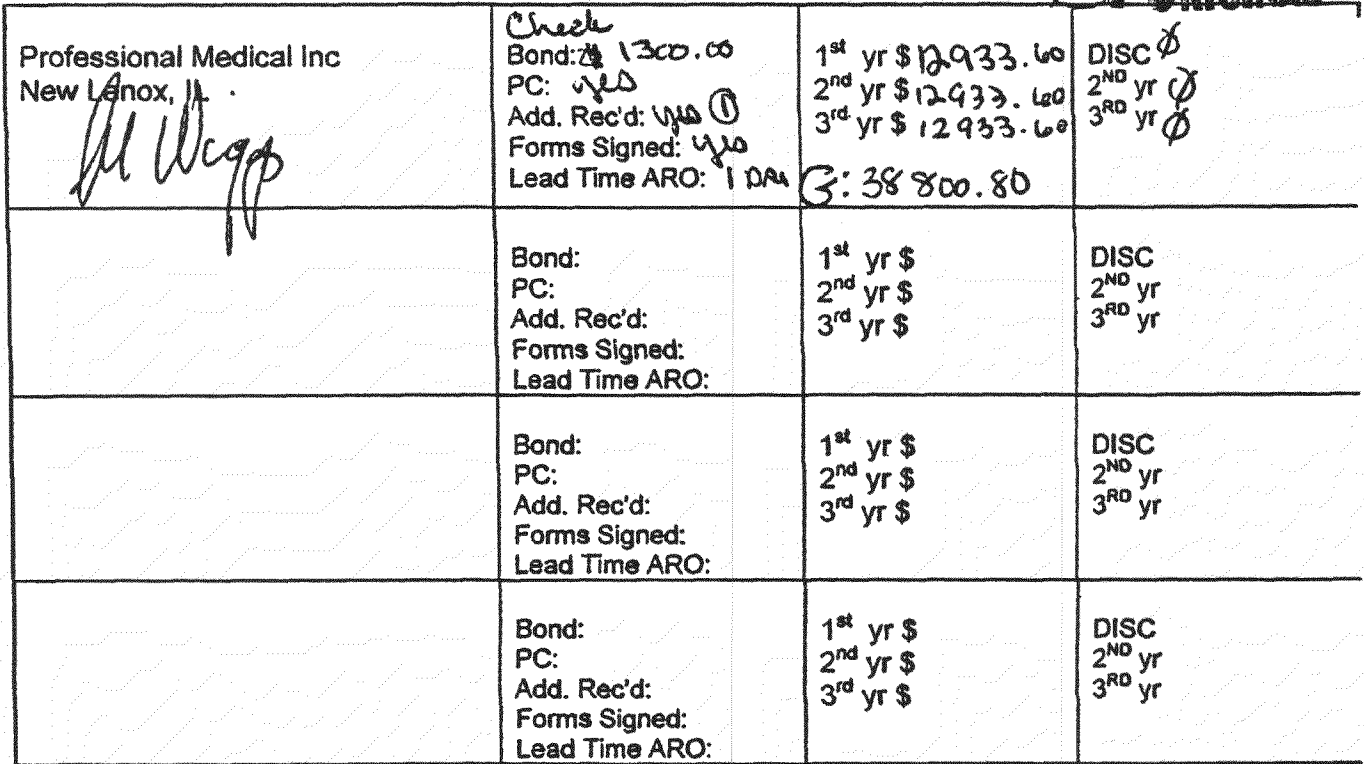 Professional Medical Inc
New Lenox, IL
Check
Bond: $ 1300.00
PC: yes
Add. Rec'd: yes ①
Forms Signed: yes
Lead Time ARO: 1 DAY
1st yr $ 12933.60
2nd yr $ 12933.60
3rd yr $ 12933.60
38 800.80
DISC Ø
2ND yr Ø
3RD yr Ø
Bond:
PC:
Add. Rec'd:
Forms Signed:
Lead Time ARO:
1st yr $
2nd yr $
3rd yr $
DISC
2ND yr
3RD yr
Bond:
PC:
Add. Rec'd:
Forms Signed:
Lead Time ARO:
1st yr $
2nd yr $
3rd yr $
DISC
2ND yr
3RD yr
Bond:
PC:
Add. Rec'd:
Forms Signed:
Lead Time ARO:
1st yr $
2nd yr $
3rd yr $
DISC
2ND yr
3RD yr